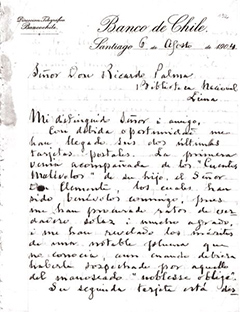 Dirección Telegráfica
Bancochile.
Banco de Chile.
Santiago 6 de Agosto de 1904.
Señor Don Ricardo Palma
Biblioteca Nacional
Lima
Mi distinguido Señor i amigo,
Con debida oportunidad me
han llegado sus dos últimas
tarjetas postales. La primera
venía acompañada de los "Cuentos
Malévolos" de su hijo, el Señor
Don Clemente, los cuales han
sido benévolos conmigo, pues
me han procurado ratos de ver
dadero solaz i mucho agrado,
i me han revelado los méritos
de una notable pluma que
no conocía, aun cuando debiera
haberla sospechado por aquello
del manoseado "noblesse oblige".
Su segunda tarjeta está des